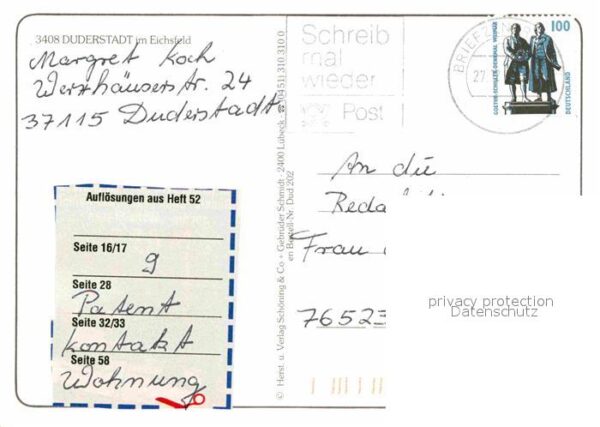 3408 DUDERSTADT im Eichsfeld
Margret Koch
Werxhäuserstr. 24
37115 Duderstadt
Auflösungen aus Heft 52
Seite 16/17
9
Seite 28
Patent
Seite 32/33
Kontakt
Seite 58
Wohnung
© Herst. u. Verlag Schöning & Co + Gebrüder Schmidt - 2400 Lübeck - ☎ (04 51) 310 310 0
Bestell-Nr. Dud 202
Schreib
mal
wieder
Post
BRIEFZ
27
100
GOETHE-SCHILLER-DENKMAL WEIMAR
DEUTSCHLAND
An die
Reda
Frau
76523
privacy protection
Datenschutz